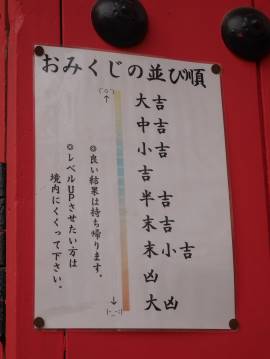 おみくじの並び順
大吉
中吉
小吉
吉
半吉
末吉
末小吉
凶
大凶
(^o^)
↑
↓
(-_-;)
◎良い結果は持ち帰ります。
◎レベルUPさせたい方は
境内にくくって下さい。